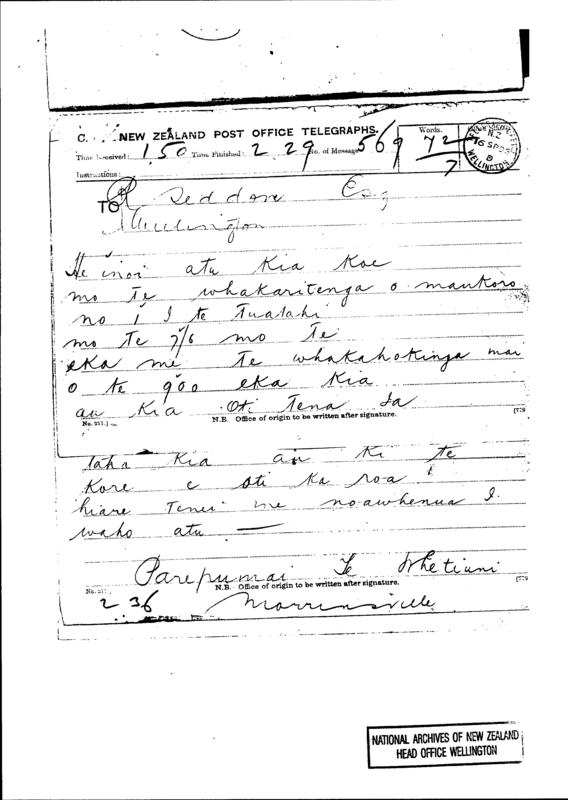 C. NEW ZEALAND POST OFFICE TELEGRAPHS.
Time Received: 1.50 Time Finished: 2 29 No. of Message 569 Words. 72
7
N.Z
16 SP
WELLINGTON
Instructions:
TO R Seddon Esq
Wellington
He inoi atu Kia Koe
mo Te whakaritenga o maukoro
no 1 I te Tuatahi
mo Te 7/6 mo Te
eka me Te whakahokinga mai
o te 900 eka Kia
au Kia Oti Tena Ta
No. 211.] N.B. Office of origin to be written after signature.
taha Kia au Ki te
Kore e oti Ka roa
Tenei me noawhenua I
waho atu —
Parepumai Te Whetiuni
No. 211 N.B. Office of origin to be written after signature.
2 36 Morrinsville
NATIONAL ARCHIVES OF NEW ZEALAND
HEAD OFFICE WELLINGTON